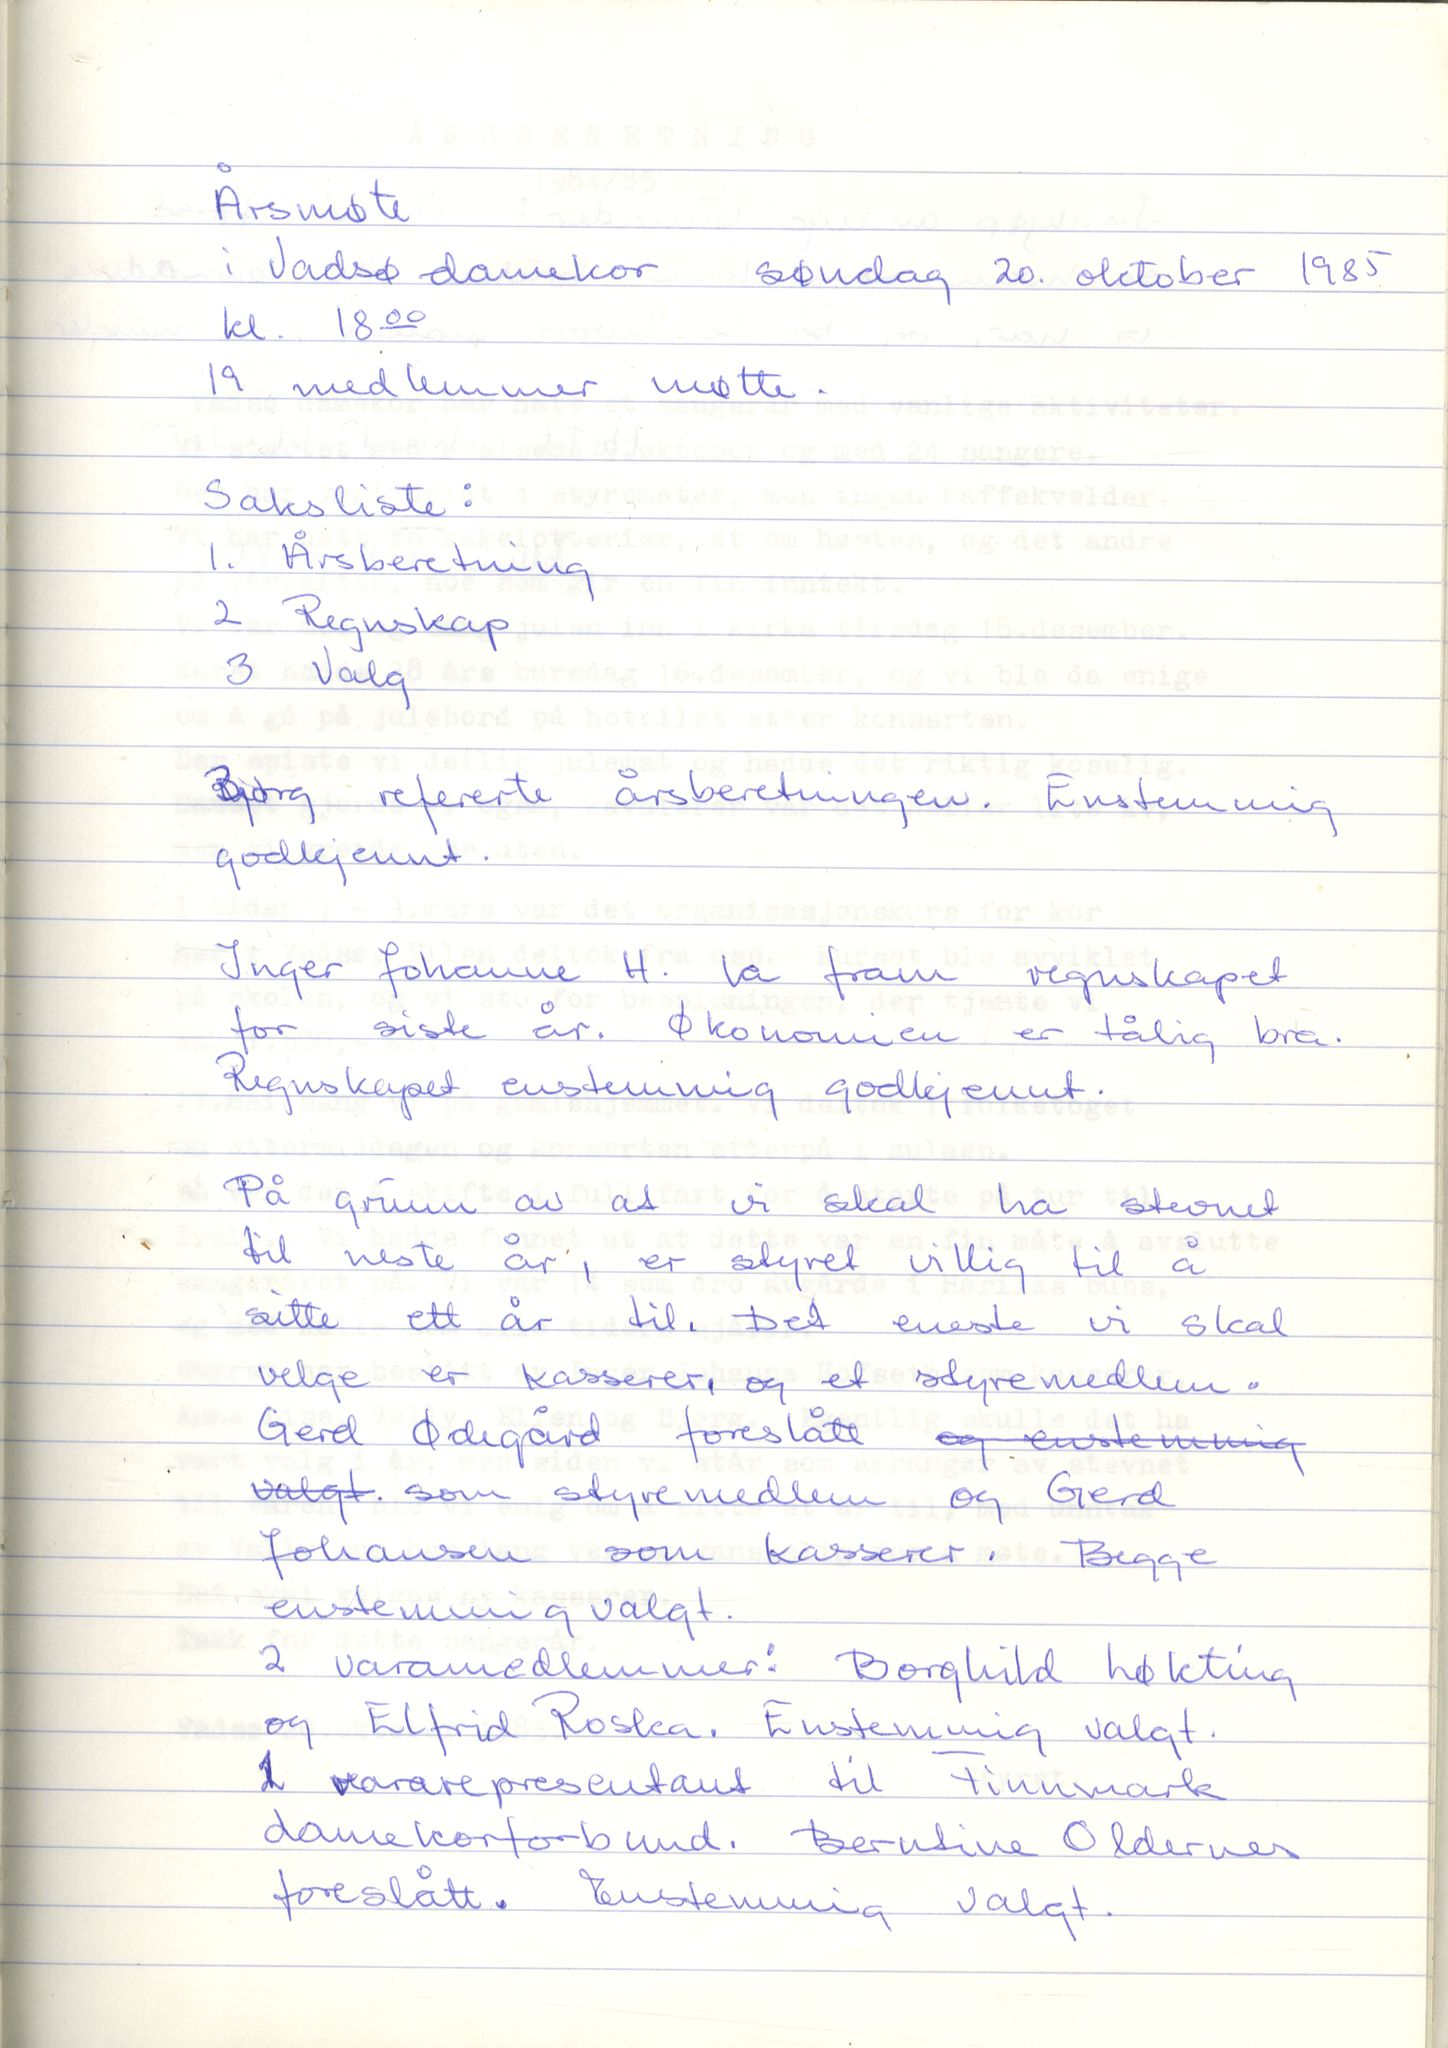 Årsmøte
i Vadsø damekor søndag 20. oktober 1985
kl. 18 00
19 medlemmer møtte.
Saksliste:
1. Årsberetning
2 Regnskap
3 Valg
Bjørg refererte årsberetningen. Enstemmig
godkjennt.
Inger Johanne H. la fram regnskapet
for siste år. Økonomien er tålig bra.
Regnskapet enstemmig godkjennt.
På grunn av at vi skal ha stevnet
til neste år, er styret villig til å
sitte ett år til. Det eneste vi skal
velge er kasserer, og et styremedlem.
Gerd Ødegård foreslått og enstemmig
valgt. som styremedlem og Gerd
Johansen som kasserer. Begge
enstemmig valgt.
2 varamedlemmer: Borghild Løkting
og Elfrid Roska. Enstemmig valgt.
1 vararepresentant til Finnmark
damekorforbund. Berntine Oldernes
foreslått. Enstemmig valgt.